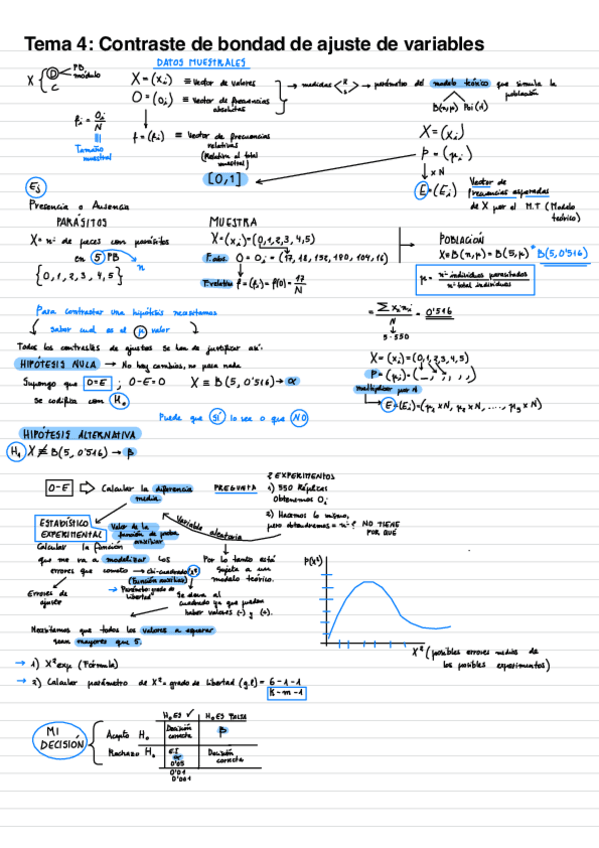 Tema 4: Contraste de bondad de ajuste de variables
DATOS MUESTRALES
X { D → PB módulo
C
X = (xi) ≡ vector de valores
O = (Oi) ≡ vector de frecuencias absolutas
→ medidas → parámetro del modelo teórico que simula la población
B(n,p) Poi(λ)
fi = Oi/N
Tamaño muestral
f = (fi) ≡ Vector de frecuencias relativas
(Relativa al total muestral)
[0,1]
X = (xi)
P = (pi)
↓ x N
E = (Ei) Vector de frecuencias esperadas de X por el M.T (Modelo teórico)
Ej
Presencia o Ausencia
PARÁSITOS
X = nº de peces con parásitos
en 5 PB
n
{0,1,2,3,4,5}
MUESTRA
X = (xi) = (0,1,2,3,4,5)
F.abs O = Oi = (17, 18, 152, 190, 104, 16)
F.relativa f = (fi) = f(0) = 17/N
POBLACIÓN
X ≡ B(n,p) = B(5,p) * B(5,0'516)
p = nº individuos parasitados / nº total individuos
= Σ xi ni / N = 0'516
5·550
Para contrastar una hipótesis necesitamos
saber cual es el p valor
Todos los contrastes de ajustes se han de justificar así.
HIPÓTESIS NULA → No hay cambios, no pasa nada
Supongo que O=E ; O-E=0 X ≡ B(5,0'516) → α
se codifica con H₀
X = (xi) = (0,1,2,3,4,5)
P = (pi) = (_, , , , )
multiplicar por N
E = (Ei) = (p₁xN, p₂xN, ...., p₅xN)
Puede que SÍ lo sea o que NO
HIPÓTESIS ALTERNATIVA
H₁ X ≢ B(5,0'516) → β
O-E ⇒ Calcular la diferencia media
PREGUNTA
2 EXPERIMENTOS
1) 550 Réplicas
Obtenemos Oi
2) Hacemos lo mismo,
pero obtendremos = nº? NO TIENE POR QUÉ
ESTADÍSTICO EXPERIMENTAL
Valor de la función de prueba auxiliar
Variable aleatoria
Calcular la función
que me va a modelizar los
errores que cometo → chi-cuadrado (x²)
(Función auxiliar)
→ Parámetro: grado de libertad
Por lo tanto está sujeta a un modelo teórico.
Errores de ajuste
Se eleva al cuadrado ya que pueden haber valores (-) y (+).
Necesitamos que todos los valores a esperar
sean mayores que 5.
P(x²)
X² (posibles errores medios de los posibles experimentos)
→ 1) X²exp. (Fórmula)
→ 2) Calcular parámetro de X² = grado de libertad (g.l) = 6-1-1
K-m-1
MI DECISIÓN
H₀ ES ✓ H₀ ES FALSA
Acepto H₀ Decisión correcta β
Rechazo H₀ E.I α 0'05 Decisión correcta
0'01
0'001